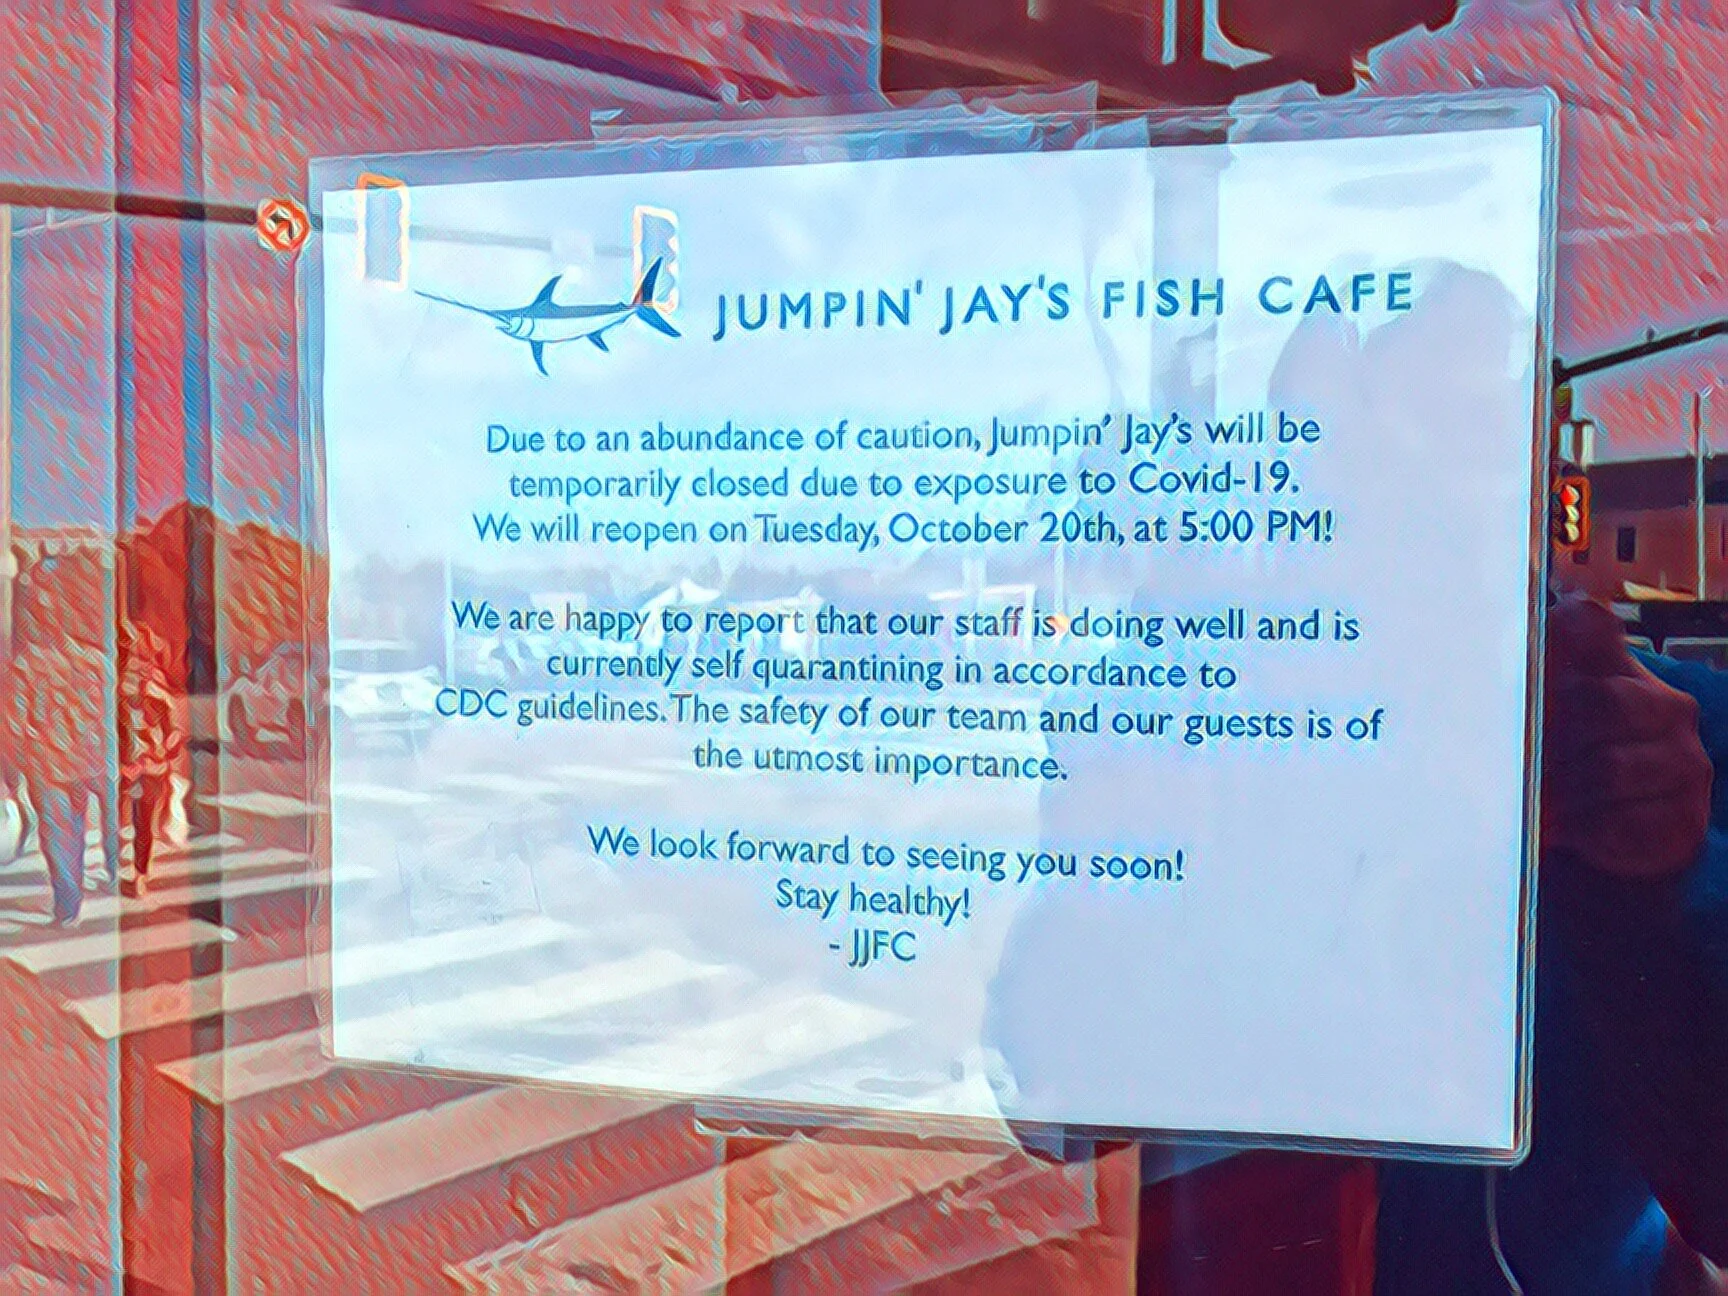 JUMPIN' JAY'S FISH CAFE
Due to an abundance of caution, Jumpin' Jay's will be
temporarily closed due to exposure to Covid-19.
We will reopen on Tuesday, October 20th, at 5:00 PM!
We are happy to report that our staff is doing well and is
currently self quarantining in accordance to
CDC guidelines. The safety of our team and our guests is of
the utmost importance.
We look forward to seeing you soon!
Stay healthy!
- JJFC